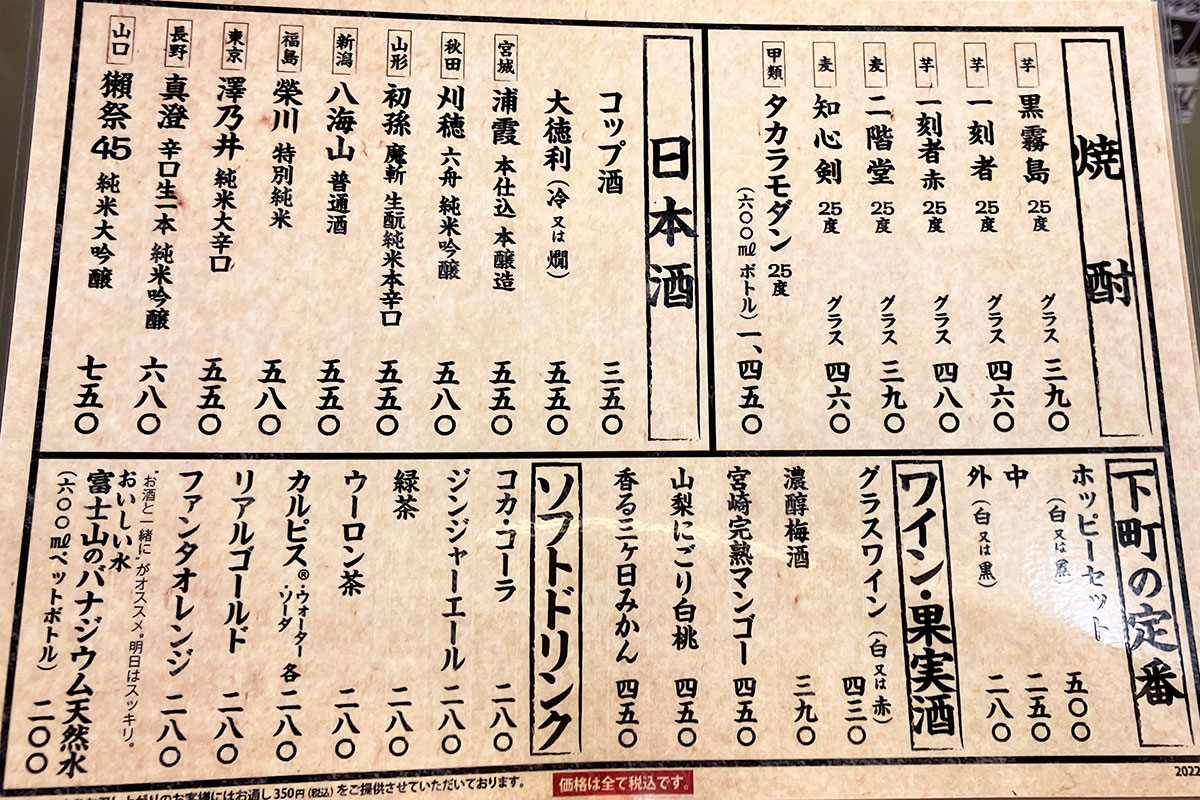 焼酎
芋 黒霧島 25度 グラス 三九〇
芋 一刻者 25度 グラス 四六〇
芋 一刻者赤 25度 グラス 四八〇
麦 二階堂 25度 グラス 三九〇
麦 知心剣 25度 グラス 四六〇
甲類 タカラモダン 25度
(六〇〇mlボトル) 一、四五〇
日本酒
コップ酒 三五〇
大徳利(冷又は燗) 五五〇
宮城 浦霞 本仕込 本醸造 五五〇
秋田 刈穂 六舟 純米吟醸 五八〇
山形 初孫 魔斬 生酛純米本辛口 五五〇
新潟 八海山 普通酒 五五〇
福島 榮川 特別純米 五八〇
東京 澤乃井 純米大辛口 五五〇
長野 真澄 辛口生一本 純米吟醸 六八〇
山口 獺祭45 純米大吟醸 七五〇
下町の定番
ホッピーセット
(白又は黒) 五〇〇
中 二五〇
外(白又は黒) 二八〇
ワイン・果実酒
グラスワイン(白又は赤) 四三〇
濃醇梅酒 三九〇
宮崎完熟マンゴー 四五〇
山梨にごり白桃 四五〇
香る三ヶ日みかん 四五〇
ソフトドリンク
コカ・コーラ 二八〇
ジンジャーエール 二八〇
緑茶 二八〇
ウーロン茶 二八〇
カルピス®・ウォーター・ソーダ 各二八〇
リアルゴールド 二八〇
ファンタオレンジ 二八〇
"お酒と一緒に"がオススメ。明日はスッキリ。
おいしい水
富士山のバナジウム天然水
(六〇〇mlペットボトル) 二〇〇
のお客様にはお通し350円(税込)をご提供させていただいております。
価格は全て税込です。
2022